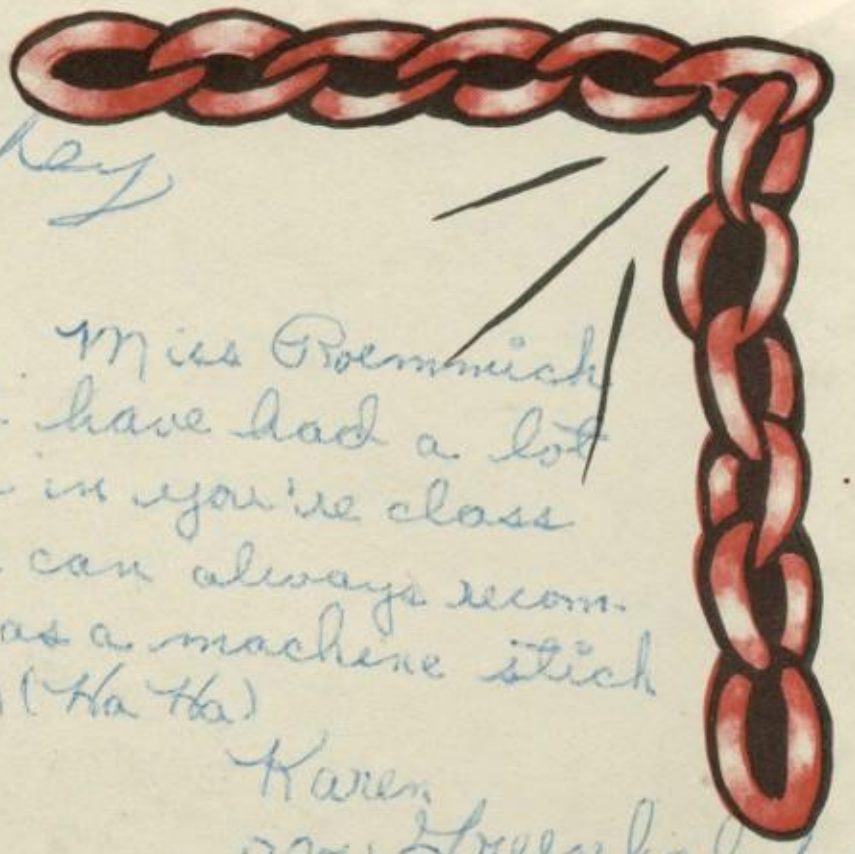 hey
Miss Roemmich
have had a lot
in you're class
can always recom-
as a machine stick
(Ha Ha)
Karen